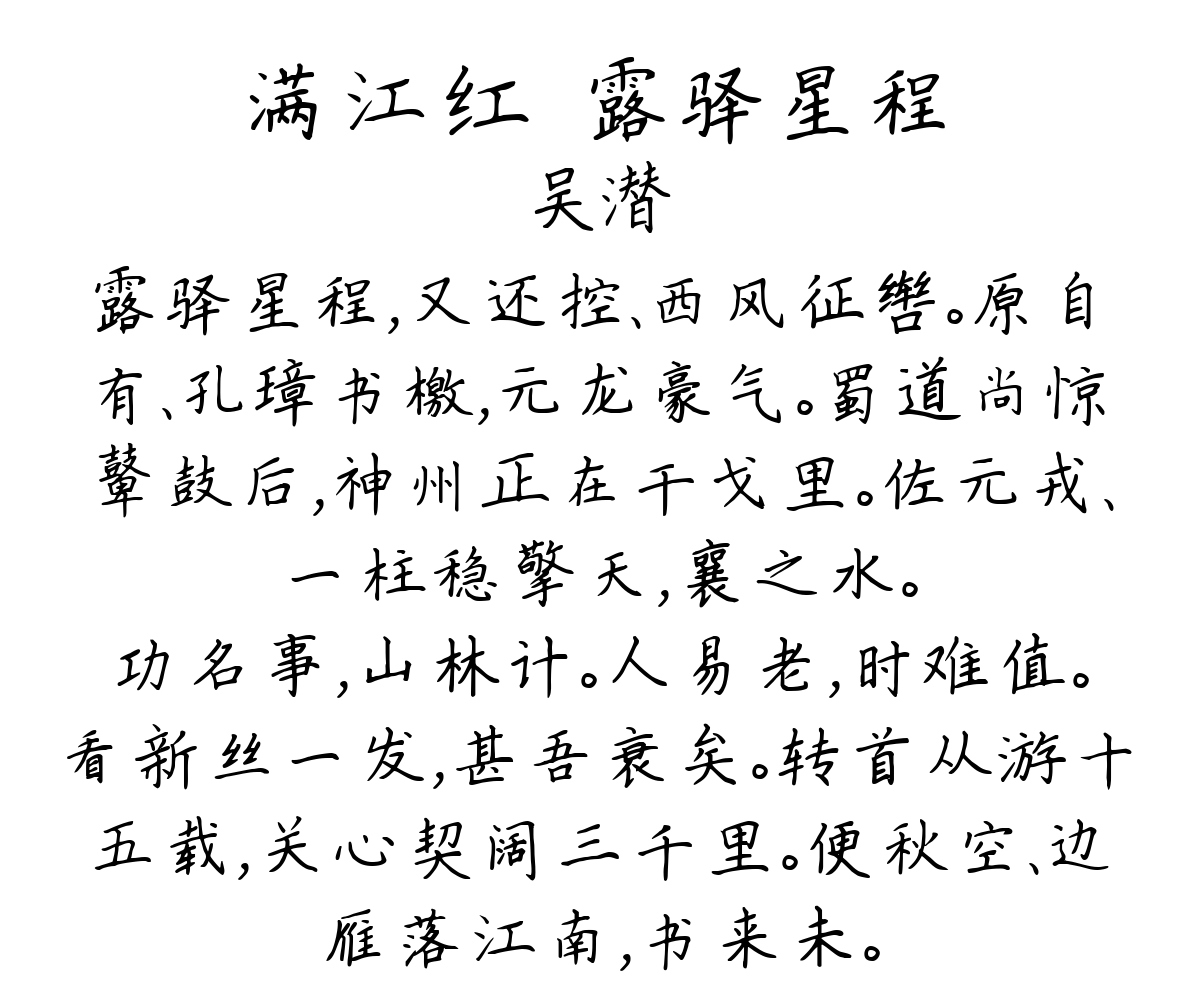 满江红 露驿星程
吴潜
露驿星程,又还控、西风征辔。原自
有、孔璋书檄,元龙豪气。蜀道尚惊
鼙鼓后,神州正在干戈里。佐元戎、
一柱稳擎天,襄之水。
功名事,山林计。人易老,时难值。
看新丝一发,甚吾衰矣。转首从游十
五载,关心契阔三千里。便秋空、边
雁落江南,书来未。